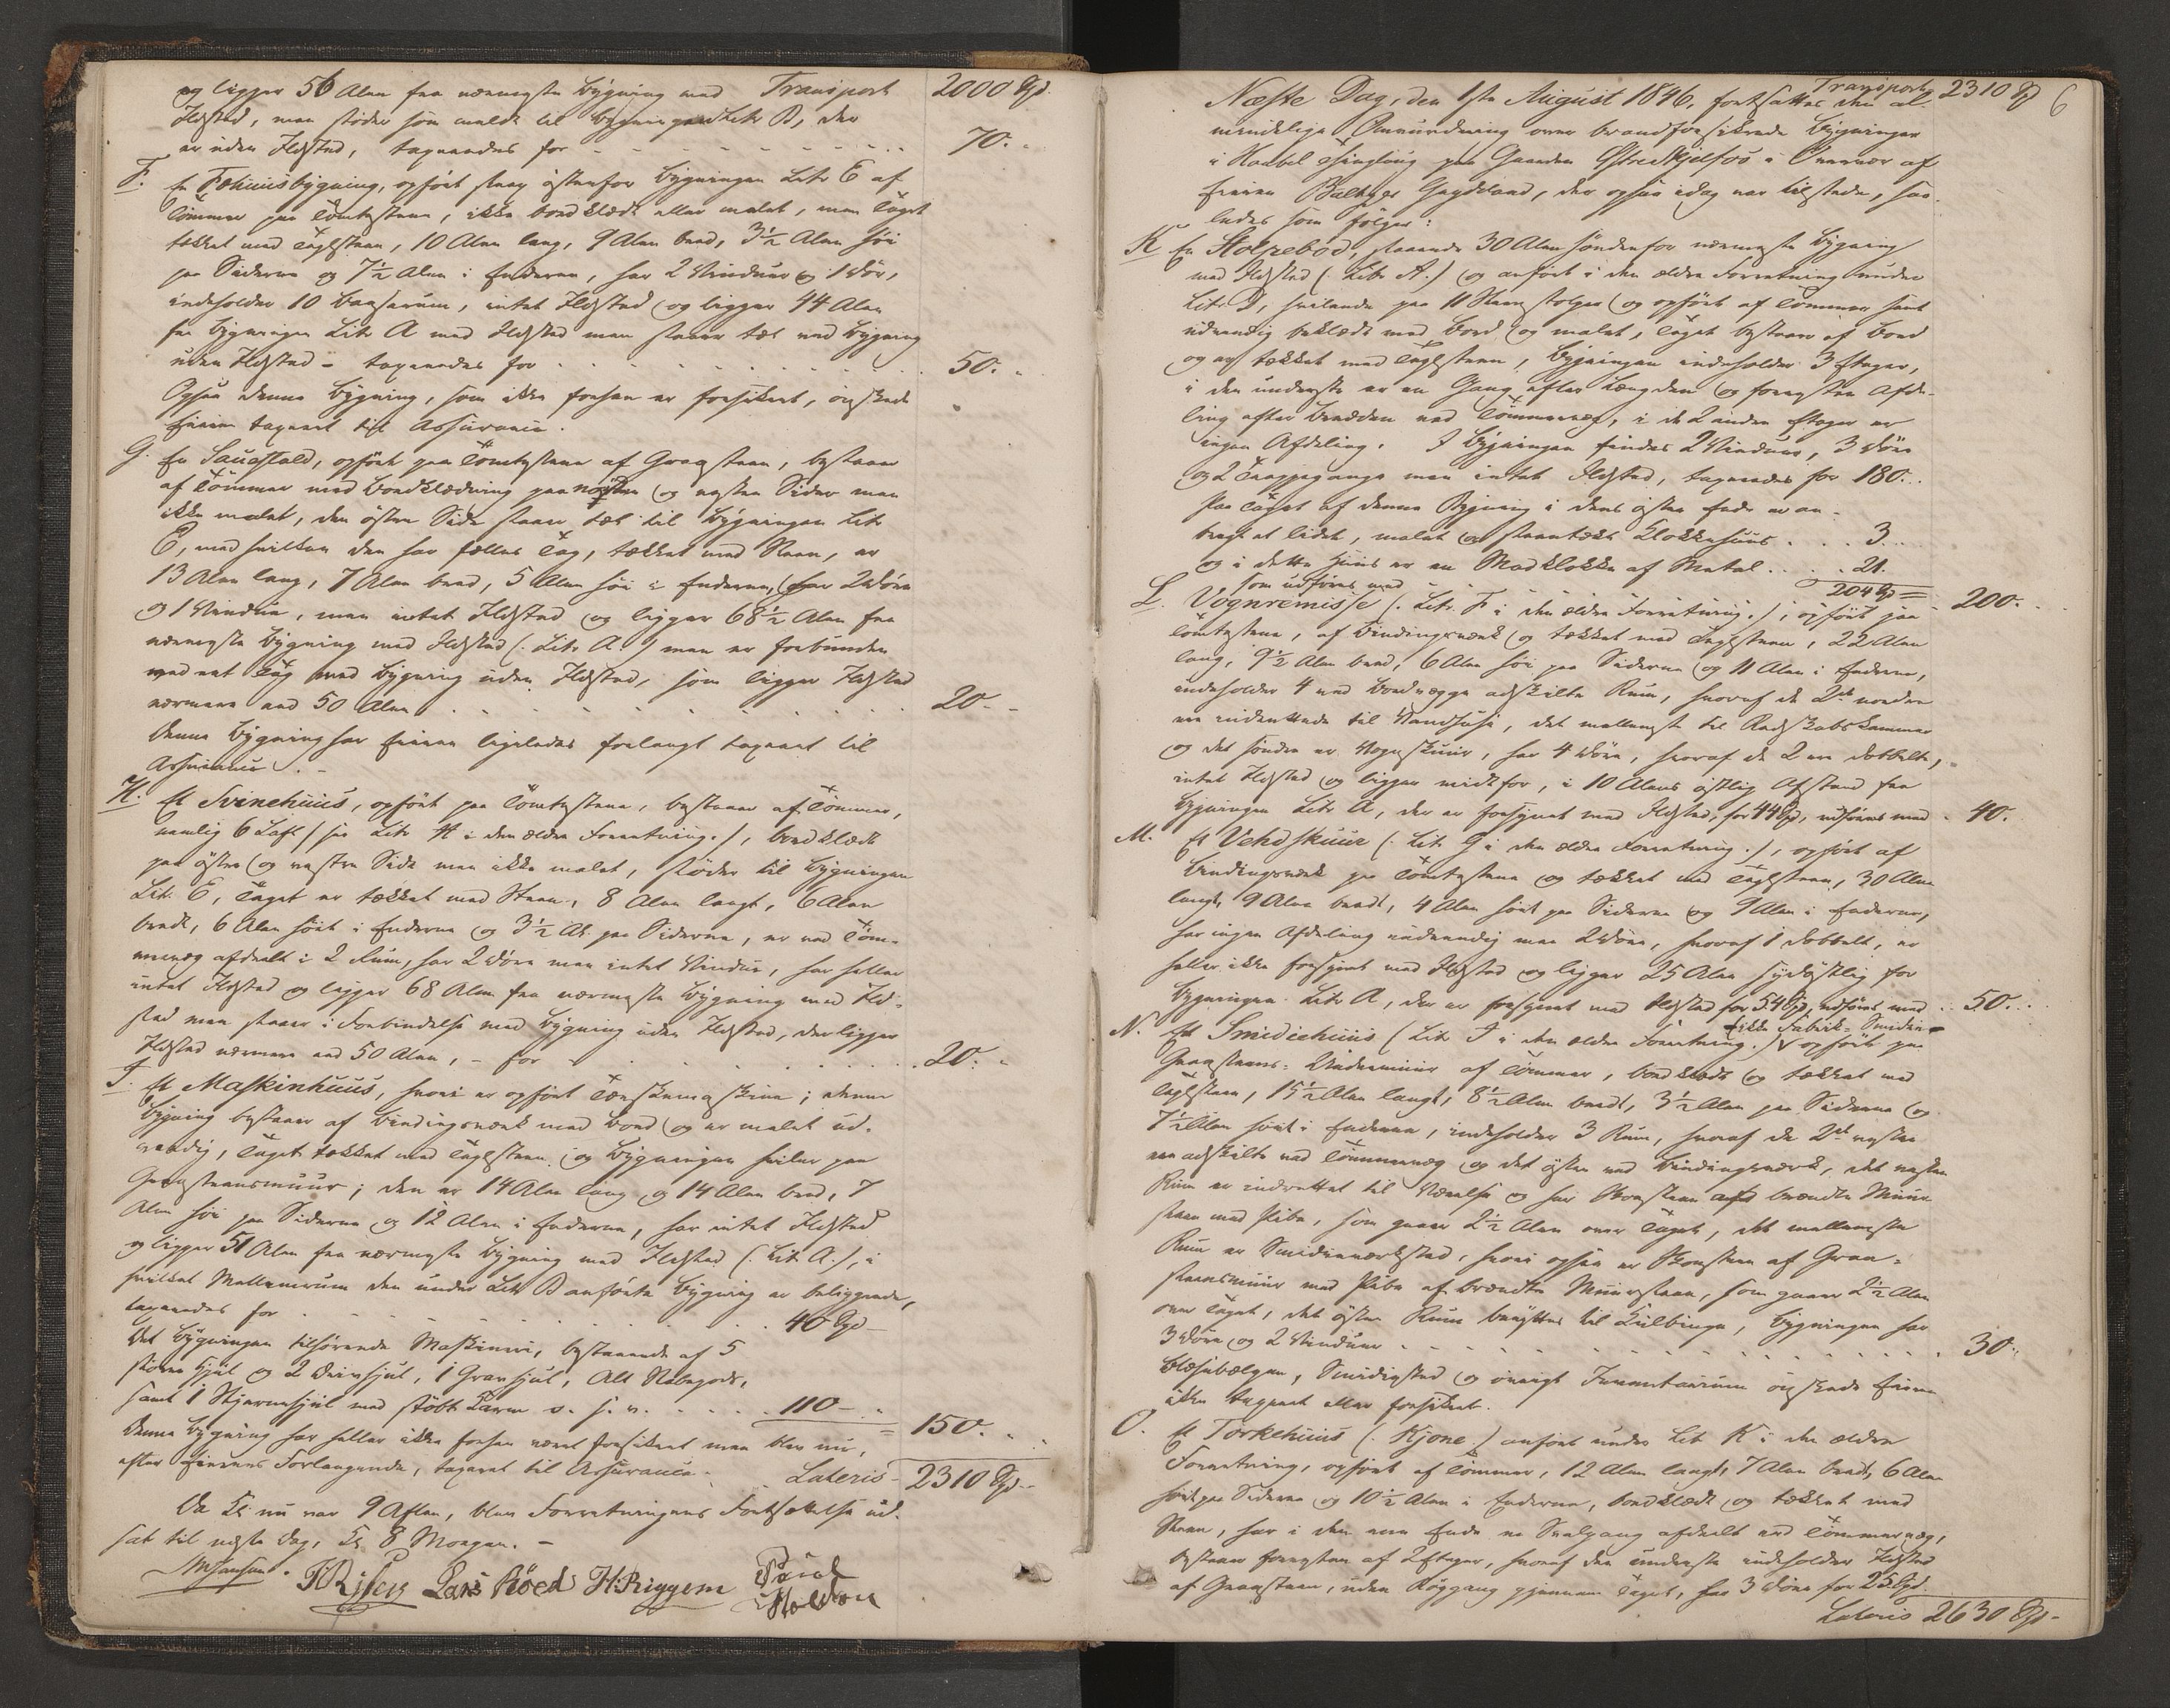 og ligger 56 Alen fra nærmeste bygning med Transport 2000 Spd.
Ildsted, men støder som meldt til bygningen Litr. B, der
er uden Ildsted, taxeredes for 70.
F. En Fæhuusbygning, opført strax østenfor bygningen Litr E af
Tømmer paa Tomtestene, ikke bordklædt eller malet, men Taget
tækket med Taglsteen, 10 Alen lang, 9 Alen bred, 3½ Alen høi
paa Siderne og 7½ Alen i Enderne, har 2 Vinduer og 1 Dør,
indeholder 10 Baaserum, intet Ildsted og ligger 44 Alen
fra bygningen Litr A med Ildsted men staaer tæt ved bygning
uden Ildsted - taxeredes for 50.
Ogsaa denne bygning, som ikke forhen er forsikret, ønskede
Eieren taxeret til Assurance.
G. En Saugstald, opført paa Tomtestene af Graasteen, bestaaer
af Tømmer med Bordklædning paa nordre og vestre Sider men
ikke malet, den østre Side staaer tæt til bygningen Litr
E, med hvilken den har fælles Tag, tækket med Steen, er
13 Alen lang, 7 Alen bred, 5 Alen høi i Enderne, har 2 Døre
og 1 Vindue, men intet Ildsted og ligger 68½ Alen fra
nærmeste bygning med Ildsted (Litr. A.) men er forbunden
ved eet Tag med bygning uden Ildsted, som ligger Ildsted
nærmere end 50 Alen 20.
Denne bygning har Eieren ligeledes forlangt taxeret til
Assurance. -
H. Et Svinehuus, opført paa Tomtestene, bestaaer af Tømmer,
nemlig 6 Laft (se Litr H i den ældre Forretning.), bordklædt
paa østre og vestre Side men ikke malet, støder til bygningen
Litr. E, Taget er tækket med Steen, 8 Alen langt, 6 Alen
bredt, 6 Alen høit i Enderne og 3½ Al. paa Siderne, er ved Tøm-
mervæg afdeelt i 2 Rum, har 2 Døre men intet Vindue, har heller
intet Ildsted og ligger 68 Alen fra nærmeste bygning med Ild-
sted men staaer i Forbindelse med bygning uden Ildsted, der ligger
Ildsted nærmere end 50 Alen, - for 20.
I. Et Maskinhuus, hvori er opført Tærskemaskine; denne
bygning bestaaer af bindingsværk med bord og er malet ud-
vendig, Taget tækket med Taglsteen og bygningen hviler paa
Graasteensmuur; den er 14 Alen lang og 14 Alen bred, 7
Alen høi paa Siderne og 12 Alen i Enderne, har intet Ildsted
og ligger 51 Alen fra nærmeste bygning med Ildsted (Litr. A.), i
hvilket Mellemrum den under Litr B anførte bygning er beliggende,
taxeredes for 40 Spd
Det bygningen tilhørende Maskineri, bestaaende af 5
større Hjul og 2 Drivhjul, 1 Gravhjul, Alt Støbegods,
samt 1 Stjernehjul med støbt s. s. v. 110
150.
Denne bygning har heller ikke forhen været forsikret men blev nu,
efter Eierens Forlangende, taxeret til Assurance. Lateris 2310 Spd.
Da Kl. nu var 9 Aften, blev Forretningens Fortsættelse ud-
sat til næste Dag, Kl. 8 Morgen. -
MHansen. Lars Röed H:Riggem Paul
Holdon
6
Transport 2310 Spd
Næste Dag, den 1ste August 1846, fortsattes den al-
mindelige Omvurdering over brandforsikrede bygninger
i Haabøl Thinglaug paa Gaarden Østre Kjelfos i Nærvær af
Eieren Baltzer Gaasland, der ogsaa idag var tilstede, saa-
ledes som følger:
K En Stolpebod, staaende 30 Alen søndenfor nærmeste bygning
med Ildsted (Litr. A.) og anført i den ældre Forretning under
Litr D, hvilende paa 11 Steenstolper og opført af Tømmer samt
udvendig beklædt med Bord og malet, Taget bestaaer af bord
og er tækket med Taglsteen, bygningen indeholder 3 Etager,
i den underste er en Gang efter Længden og forresten Afde-
ling efter Bredden ved Tømmervæg, i de 2 andre Etager er
ingen Afdeling. I bygningen findes 2 Vinduer, 3 Døre
og 2 Trappegange men intet Ildsted, taxeredes for 180.
Paa Taget af denne Bygning i dens østre Ende er an-
bragt et lidet, malet og steentækt Klokkehuus 3.
og i dette Huus er en Madklokke af Metal 21.
som udføres med 204 Spd 200.
L. Vognremisse (Litr. F i den ældre Forretning.), opført paa
Tomtestene, af bindingsværk og tækket med Taglsteen, 22 Alen
lang, 9½ Alen bred, 6 Alen høi paa Siderne og 11 Alen i Enderne,
indeholder 4 ved bordvægge adskilte Rum, hvoraf de 2de nordre
ere indrettede til Vandhuse, det mellemste til Redskabskammer
og det søndre er Vognskuur, har 4 Døre, hvoraf de 2 ere dobbelte,
intet Ildsted og ligger midtfor, i 10 Alens østlig Afstand fra
bygningen Litr A, der er forsynet med Ildsted, for 44 Spd, udføres med 40.
M. Et Vehdskuur (Litr G i den ældre Forretning.), opført af
bindingsværk paa Tomtestene og tækket med Taglsteen, 30 Alen
langt, 9 Alen bredt, 4 Alen høit paa Siderne og 9 Alen i Enderne,
har ingen Afdeling indvendig men 2 Døre, hvoraf 1 dobbelt, er
heller ikke forsynet med Ildsted og ligger 25 Alen sydøstlig for
bygningen Litr A, der er forsynet med Ildsted for 54 Spd, udføres med 50.
N. Et Smidiehuus (Litr I i den ældre Forretning.) ikke Fabrik-Smidie opført paa
Graasteens-Undermuur af Tømmer, bordklædt og tækket med
Taglsteen, 15½ Alen langt, 8½ Alen bredt, 3½ Alen paa Siderne og
7½ Alen høit i Enderne, indeholder 3 Rum, hvoraf de 2de vestre
ere adskilte ved Tømmervæg og det østre ved bindingsværk, det vestre
Rum er indrettet til Værelse og har Skorsteen af brændte Muur-
steen med Pibe, som gaaer 2½ Alen over Taget, det mellemste
Rum er Smidieværksted, hvori ogsaa er Skorsteen af Graa-
steensmuur med Pibe af brændte Muursteen, som gaaer 2½ Alen
over Taget, det østre Rum benyttes til Kulbinge, bygningen har
3 Døre og 2 Vinduer 30.
Blæsebælgen, Smidiested og øvrigt Inventarium ønskede Eieren
ikke taxeret eller forsikret.
O. Et Törkehuus (Kjone) anført under Litr K i den ældre
Forretning, opført af Tømmer, 12 Alen langt, 7 Alen bredt, 6 Alen
høit paa Siderne og 10½ Alen i Enderne, bordklædt og tækket med
Steen, har i den ene Ende en Svalgang afdeelt ved Tømmervæg,
bestaaer forresten af 2 Etager, hvoraf den underste indeholder Ildsted
af Graasteen, uden Røggang gjennem Taget, har 3 Døre for 25 Spd
Lateris 2630 Spd